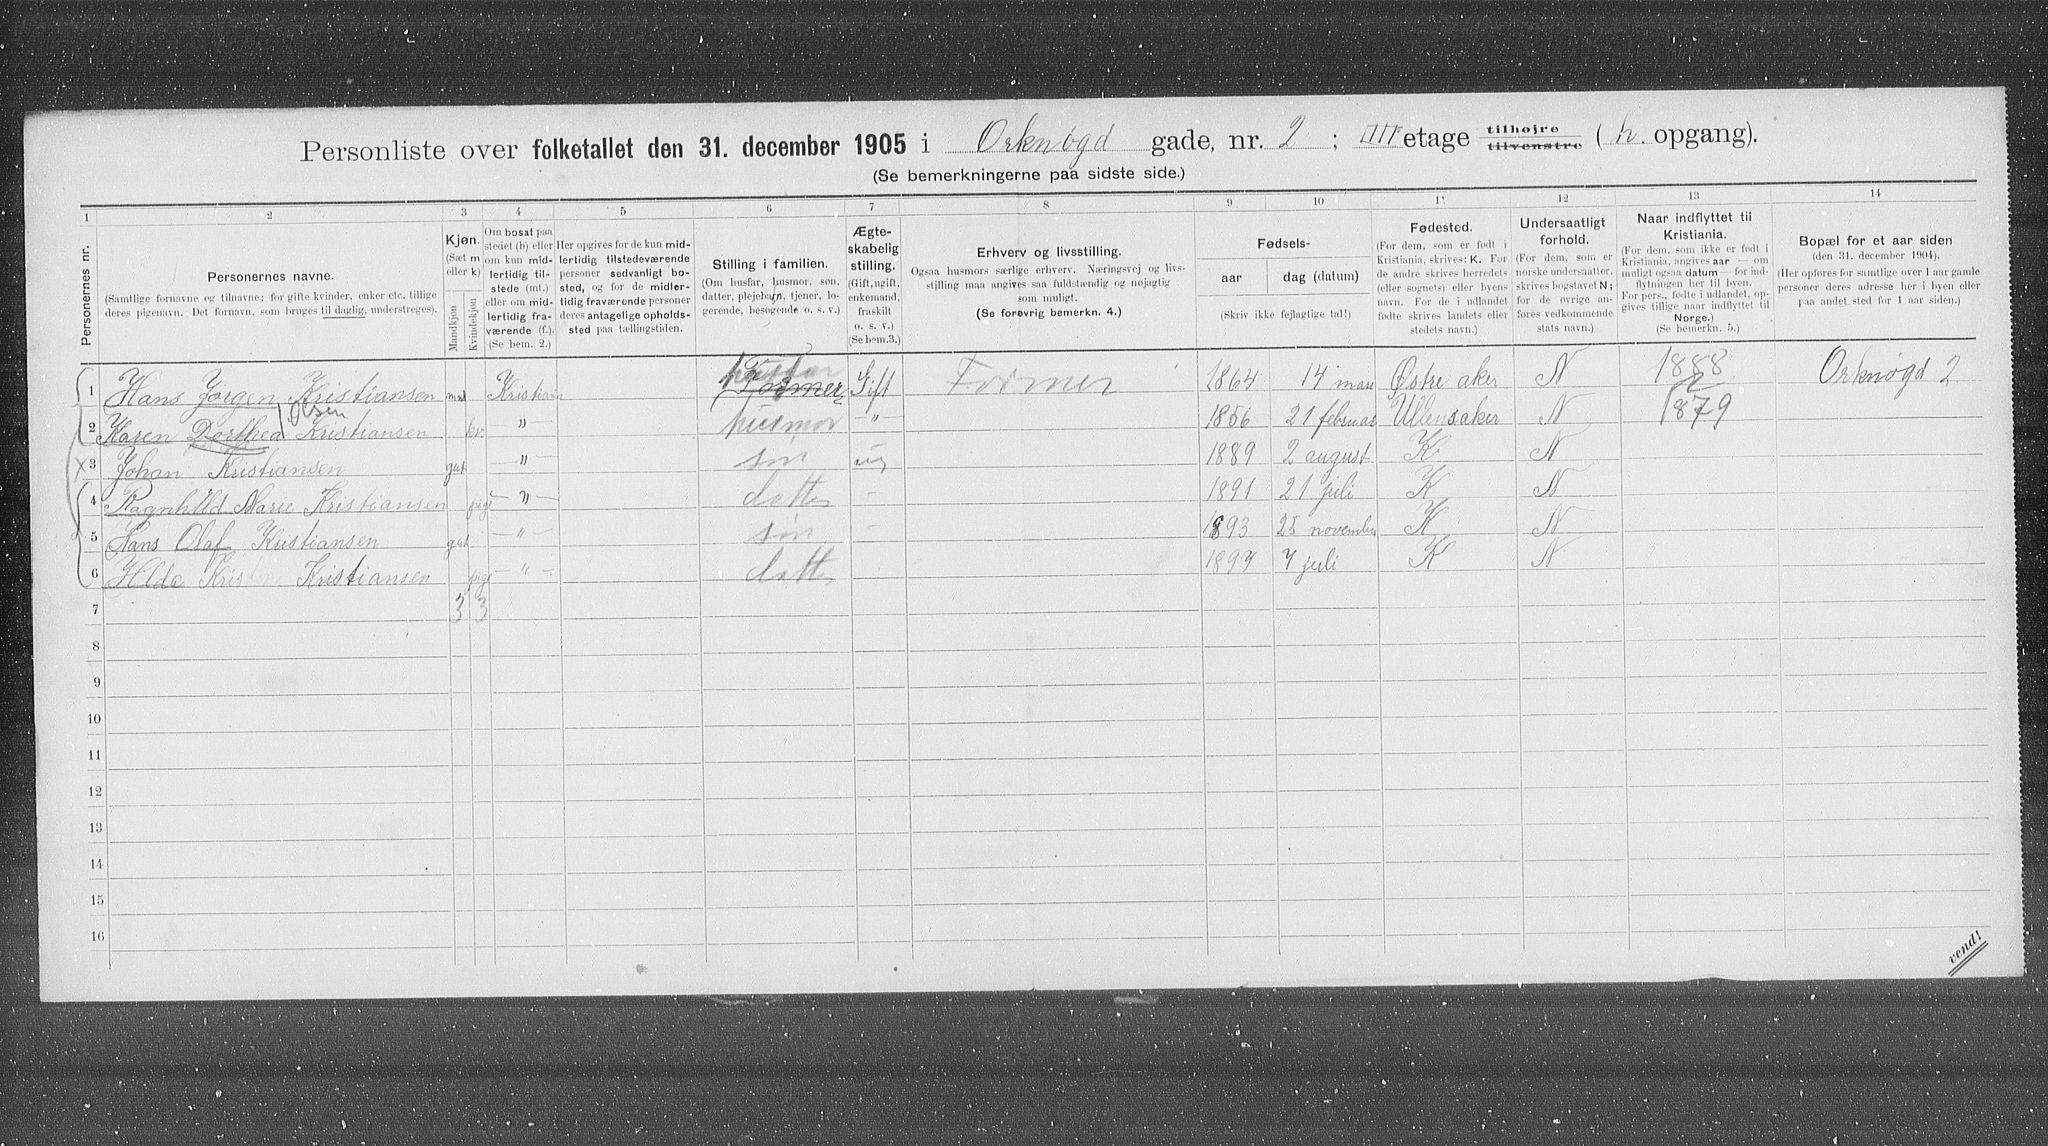 Personliste over folketallet den 31. december 1905 i Orknøgd gade, nr. 2 ; III etage tilhøjre tilvenstre ( h. opgang).
(Se bemerkningerne paa sidste side.)
1 2 3 4 5 6 7 8 9 10 11 12 13 14
Personernes nr.
Personernes navne.
(Samtlige fornavne og tilnavne; for gifte kvinder, enker etc. tillige
deres pigenavn. Det fornavn, som bruges til daglig, understreges).
Kjøn.
(Sæt m
eller k)
Mandkjøn
Kvindekjøn
Om bosat paa
stedet (b) eller
om kun mid-
lertidig til-
stede (mt.)
eller om mid-
lertidig fra-
værende (f.).
(Se bem. 2.)
Her opgives for de kun mid-
lertidig tilstedeværende
personer sedvanligt bo-
sted, og for de midler-
tidig fraværende personer
deres antagelige opholds-
sted paa tællingstiden.
Stilling i familien.
(Om husfar, husmor, søn,
datter, plejebarn, tjener, lo-
gerende, besøgende o. s. v.)
Ægte-
skabelig
stilling.
(Gift, ugift,
enkemand,
fraskilt
o. s. v.)
(Se bem.3.)
Erhverv og livsstilling.
Ogsaa husmors særlige erhverv. Næringsvej og livs-
stilling maa angives saa fuldstændig og nøjagtig
som muligt.
(Se forøvrig bemerkn. 4.)
Fødsels-
aar dag (datum)
(Skriv ikke fejlagtige tal!)
Fødested.
(For dem, som er født i
Kristiania, skrives: K. For
de andre skrives herredets
(eller sognets) eller byens
navn. For de i udlandet
fødte skrives landets eller
stedets navn.)
Undersaatligt
forhold.
(For dem, som er
norske undersaatter,
skrives bogstavet N;
for de øvrige an-
føres vedkommende
stats navn.)
Naar indflyttet til
Kristiania.
(For dem, som ikke er født i
Kristiania, angives aar — om
muligt ogsaa datum — for ind-
flytningen her til byen.
For pers., fødte i udlandet, op-
gives tillige naar indflyttet til
Norge.)
(Se bemerkn. 5.)
Bopæl for et aar siden
(den 31. december 1904).
(Her opføres for samtlige over 1 aar gamle
personer deres adresse her i byen eller
paa andet sted for 1 aar siden.)
1 Hans Jørgen Kristiansen Kristian husfar Former Gift Former 1864 14 Østre aker N 1888 Orknøgd 2
Olsen
2 Karen Dorthea Kristiansen kv — " — husmor — " — 1856 21 februar Ullensaker N 1879
x 3 Johan Kristiansen gut — " — søn ug 1889 2 august K N
4 Ragnhild Marie Kristiansen pige — " — datter — 1891 21 juli K N
5 Hans Olaf Kristiansen gut — " — søn — 1893 25 november K N
6 Hilda Kristiansen pige — " — datter 1897 7 juli K N
7 3 3
8
9
10
11
12
13
14
15
16
vend!